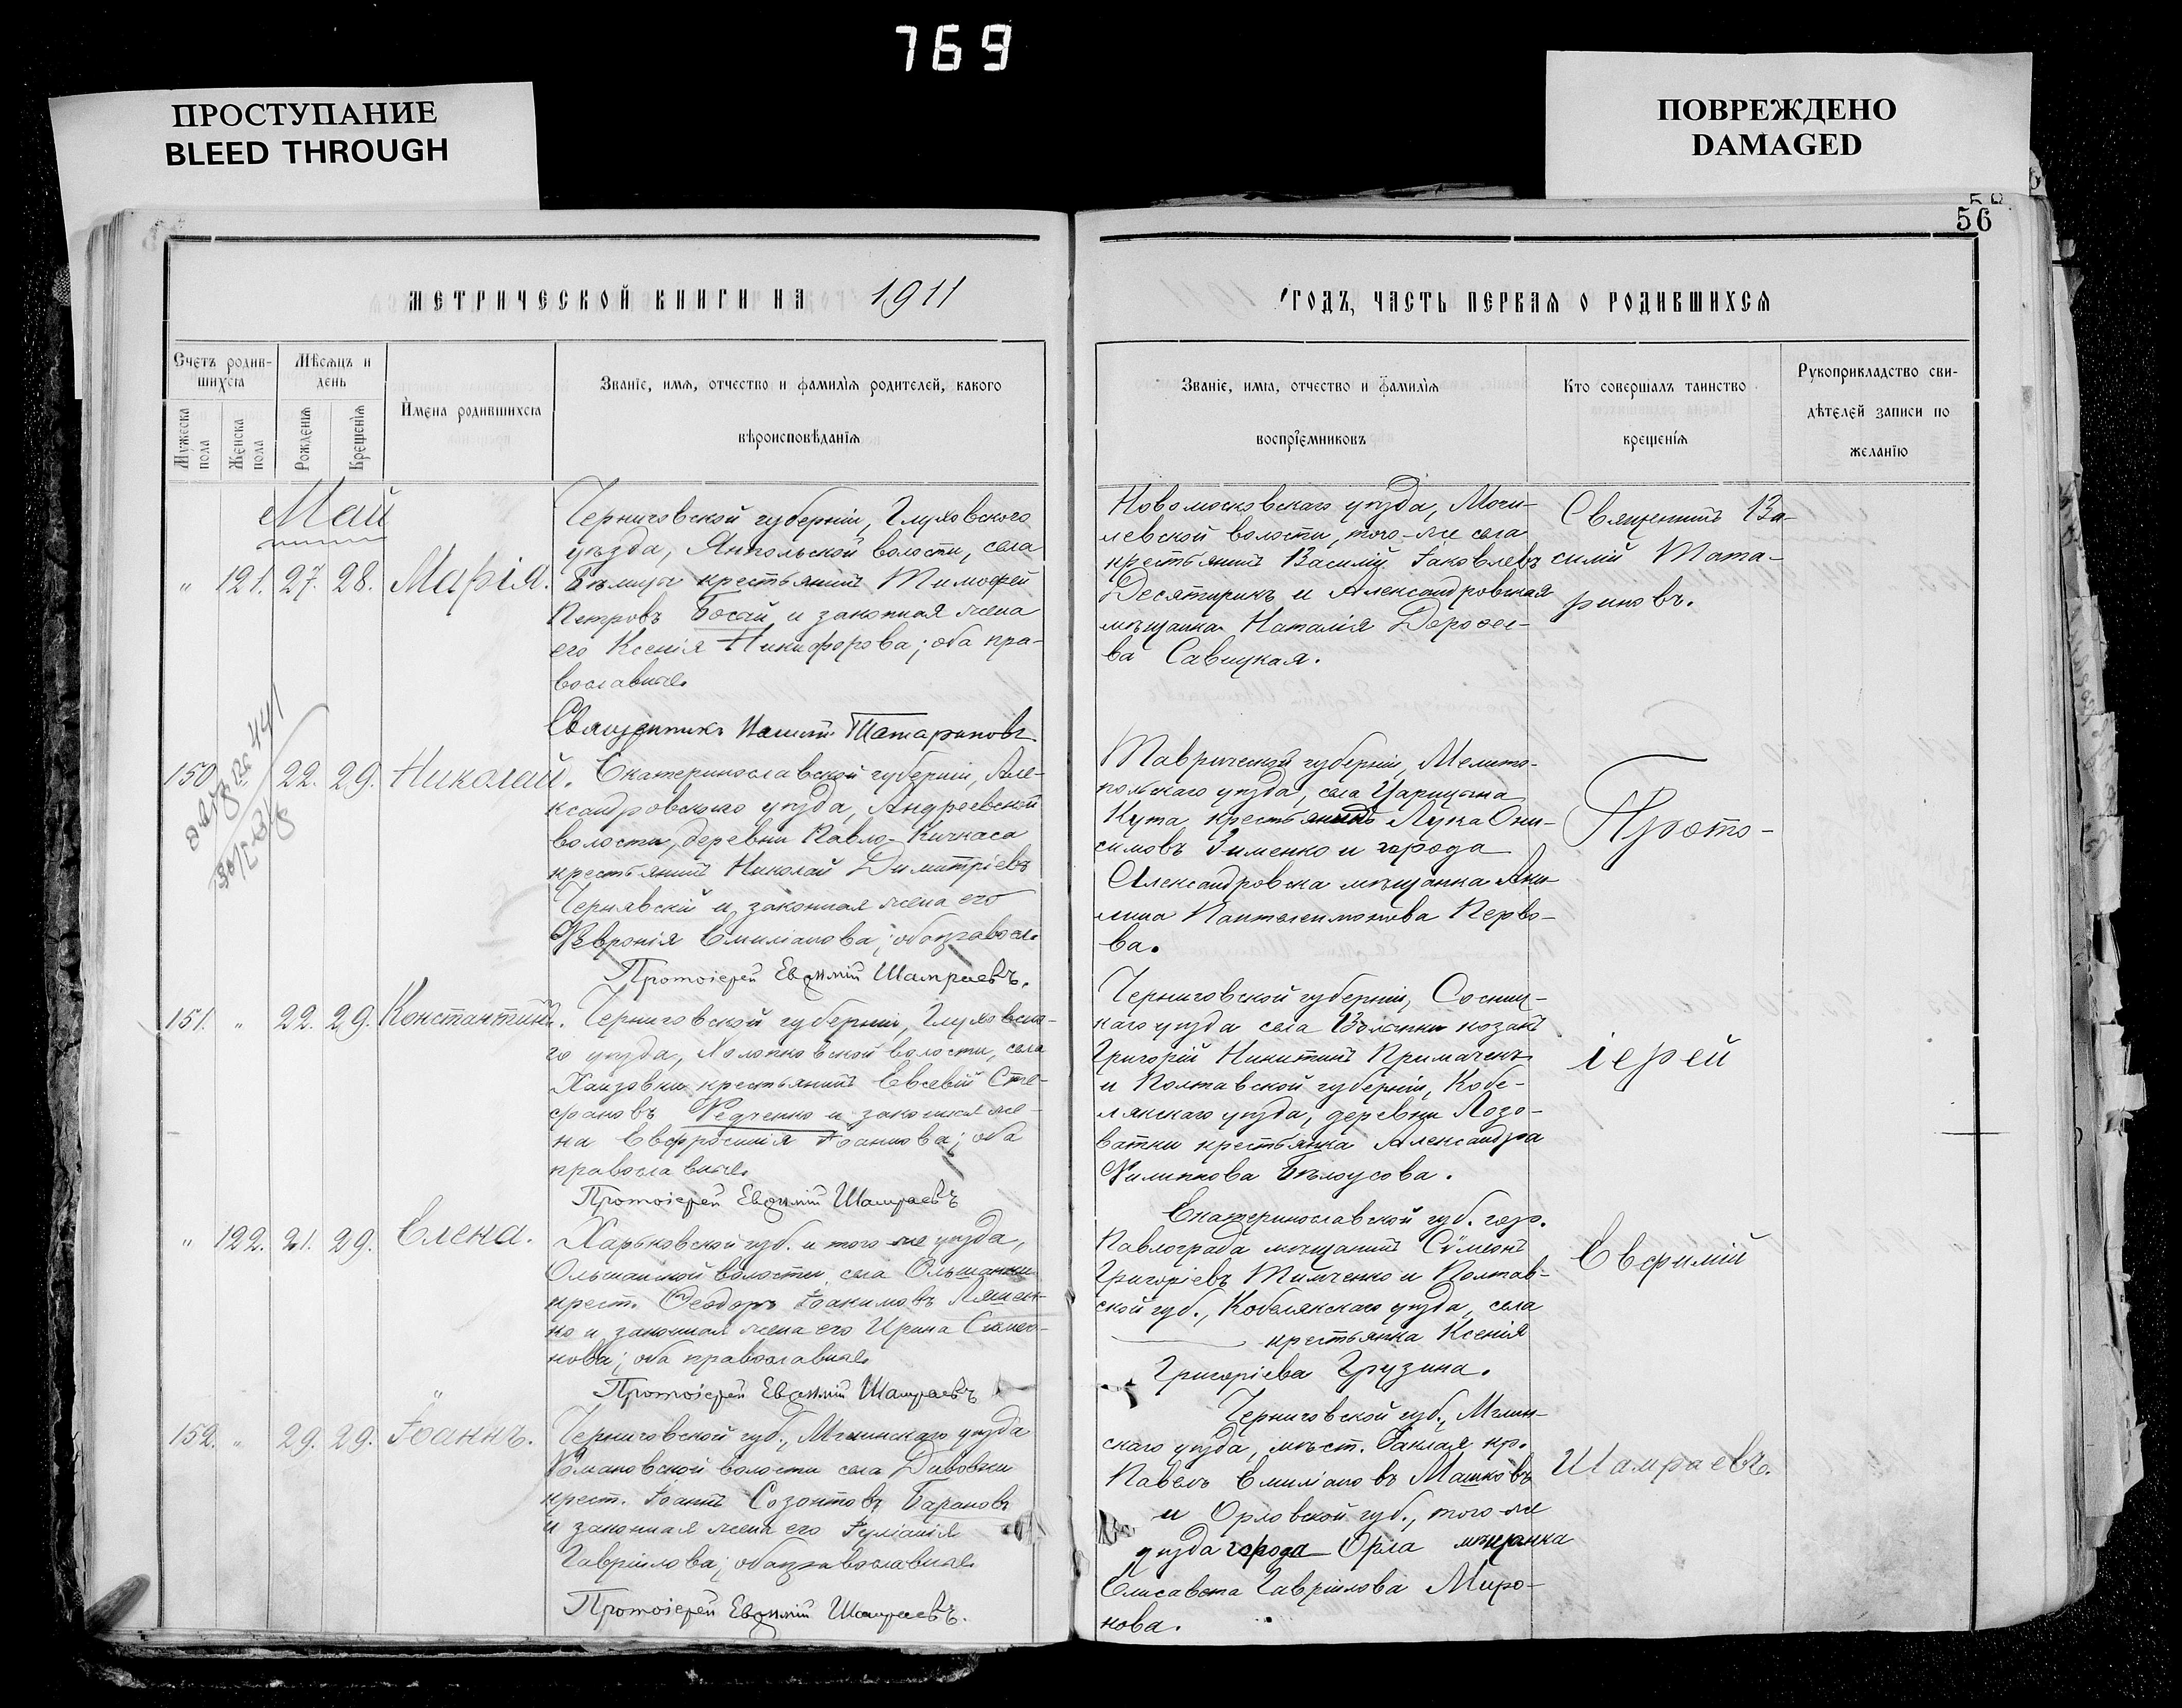 769
ПРОСТУПАНИЕ
BLEED THROUGH
ПОВРЕЖДЕНО
DAMAGED
56
МЕТРИЧЕСКОЙ КНИГИ НА 1911
ГОДЪ, ЧАСТЬ ПЕРВАЯ О РОДИВШИХСЯ
Счетъ родив-
шихся
Мѣсяцъ и
день
Мужеска
пола
Женска
пола
Рожденія
Крещенія
Имена родившихся
Званіе, имя, отчество и фамилія родителей, какого
вѣроисповѣданія
Званіе, имя, отчество и фамилія
воспріемниковъ
Кто совершалъ таинство
крещенія
Рукоприкладство сви-
дѣтелей записи по
желанію
Май
" 121. 27. 28. Марія.
Черниговской губерніи, Глуховского
уѣзда, Янпольской волости, села
крестьянинъ Тимофей
Петровъ Босый и законная жена
его Ксенія Никифорова; оба пра-
вославные.
Священникъ Татариновъ
Новомосковскаго уѣзда, Моги-
левской волости, того-же села
крестьянинъ Василій Іаковлевъ
Десятирикъ и Александровская
мѣщанка Наталія Дорофее-
ва Савицкая.
Священникъ Ва-
силій Тата-
риновъ.
150 22. 29. Николай.
Екатеринославской губерніи, Але-
ксандровскаго уѣзда, Андреевской
волости, деревни Павло-Кичкаса
крестьянинъ Николай Димитріевъ
Чернявскій и законная жена его
Ѳевронія Емиліанова; оба правосл.
Протоіерей Евѳимій Шамраевъ.
Таврической губерніи, Мелито-
польскаго уѣзда, села Царицына
Кута крестьянинъ Лука Они-
симовъ Зименко и города
Александровска мѣщанка Аки-
лина Пантелеимонова Перво-
ва.
151. " 22. 29. Константинъ.
Черниговской губерніи, Глуховска-
го уѣзда, Холопковской волости, села
крестьянинъ Евсевій Сте-
фановъ Ѳедченко и законная же-
на Евфросинія Іоаннова; оба
православные.
Протоіерей Евѳимій Шамраевъ
Черниговской губерніи, Сосниц-
каго уѣзда села козакъ
Григорій Никитинъ Примаченко
и Полтавской губерніи, Кобе-
лякскаго уѣзда, деревни Лозо-
ватки крестьянка Александра
Филиппова Бѣлоусова.
" 122. 21. 29. Елена.
Харьковской губ. и того же уѣзда,
Ольшанской волости, села Ольшанки
крест. Ѳеодоръ Іоакимовъ Ляшен-
ко и законная жена его Ирина Симео-
нова; оба православные.
Протоіерей Евѳимій Шамраевъ
Екатеринославской губ. гор.
Павлограда мѣщанинъ Сѵмеонъ
Григоріевъ Тимченко и Полтав-
ской губ., Кобелякскаго уѣзда, села
крестьянка Ксенія
Григоріева Грузина.
152. " 29. 29. Іоаннъ.
Черниговской губ., Мглинскаго уѣзда
Романовской волости села Дивовки
крест. Іоаннъ Созонтовъ Барановъ
и законная жена его Іуліанія
Гавріилова; оба православные.
Протоіерей Евѳимій Шамраевъ.
Черниговской губ., Мглин-
скаго уѣзда, мѣст. кр.
Павелъ Емиліановъ Машковъ
и Орловской губ., того-же
уѣзда города Орла мѣщанка
Елисавета Гавріилова Миро-
нова.
Прото-
іерей
Евфимій
Шамраевъ.